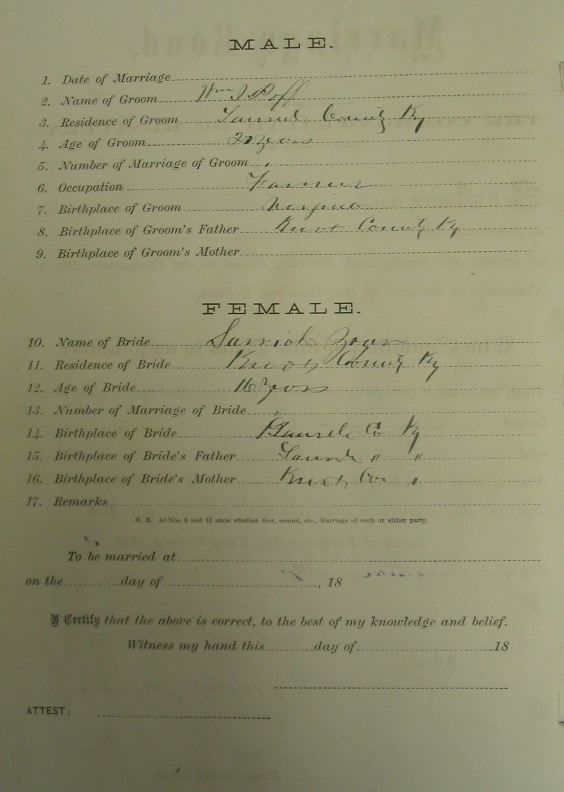 MALE.
1. Date of Marriage
2. Name of Groom Wm J Poff
3. Residence of Groom County Ky
4. Age of Groom years
5. Number of Marriage of Groom
6. Occupation Farmer
7. Birthplace of Groom
8. Birthplace of Groom's Father Knox County Ky
9. Birthplace of Groom's Mother
FEMALE.
10. Name of Bride
11. Residence of Bride Knox County Ky
12. Age of Bride 16 years
13. Number of Marriage of Bride
14. Birthplace of Bride Co Ky
15. Birthplace of Bride's Father " "
16. Birthplace of Bride's Mother Knox
17. Remarks
N. B. At Nos. 5 and 13 state whether first, second, etc., Marriage of each or either party.
To be married at
on the day of , 18
I Certify that the above is correct, to the best of my knowledge and belief.
Witness my hand this day of 18
ATTEST: